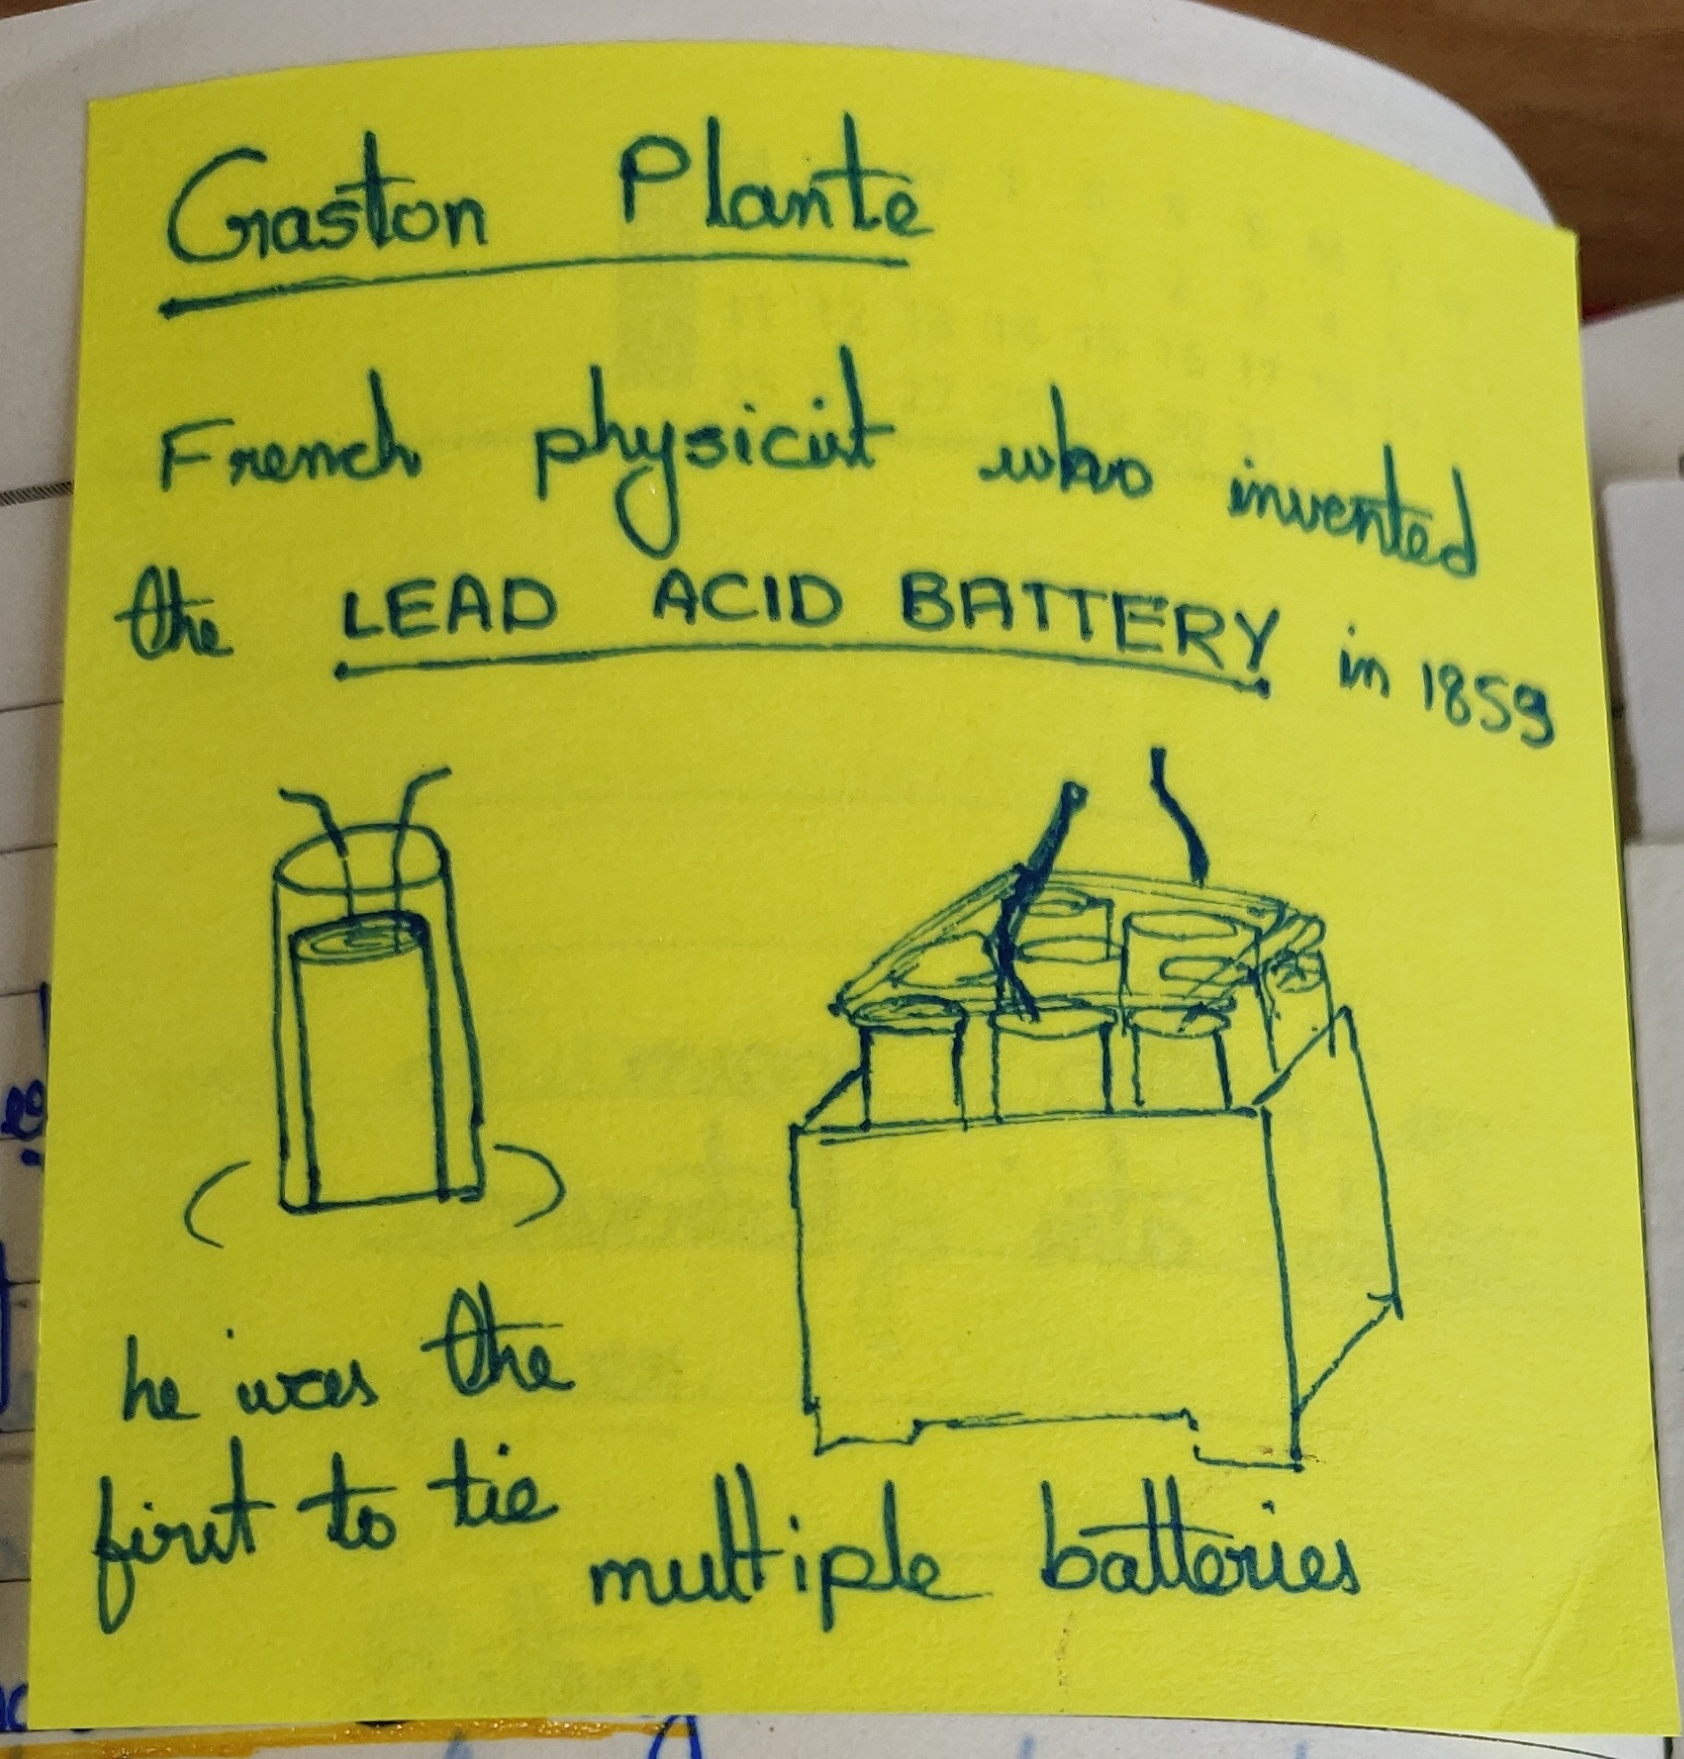 Gaston Plante
French physicist who invented
the LEAD ACID BATTERY in 1859
he was the
first to tie
multiple batteries